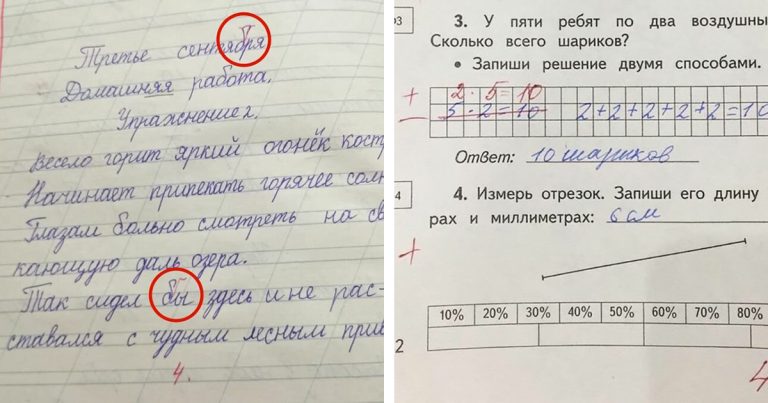 Третье сентября
Домашняя работа.
Упражнение 2.
Весело горит яркий огонёк
Начинает припекать горячее
Глазам больно смотреть на
кающую даль озера.
Так сидел бы здесь и не рас-
ставался с чудным лесным
4.
3. У пяти ребят по два
Сколько всего шариков?
• Запиши решение двумя способами.
+ 2 · 5 = 10
— 5 · 2 = 10 2+2+2+2+2=10
Ответ: 10 шариков
4
4. Измерь отрезок. Запиши его длину
рах и миллиметрах: 6 см
+
10% 20% 30% 40% 50% 60% 70% 80%
2
4